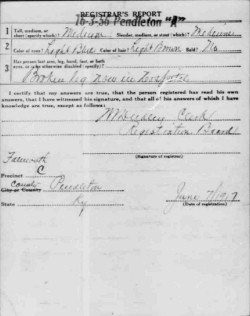 REGISTRAR'S REPORT
16-3-36 Pendleton "A"
1 Tall, medium, or short (specify which)? Medium Slender, medium, or stout (which)? Medium
2 Color of eyes? Light Blue Color of hair? Light Brown Bald? No
3 Has person lost arm, leg, hand, foot, or both eyes, or is he otherwise disabled (specify)?
Broken leg now in Hospital
I certify that my answers are true, that the person registered has read his own answers, that I have witnessed his signature, and that all of his answers of which I have knowledge are true, except as follows:
Clerk
Registration Board
(Signature of registrar)
Falmouth
Precinct C
City or County Pendleton
State Ky
June
(Date of registration)